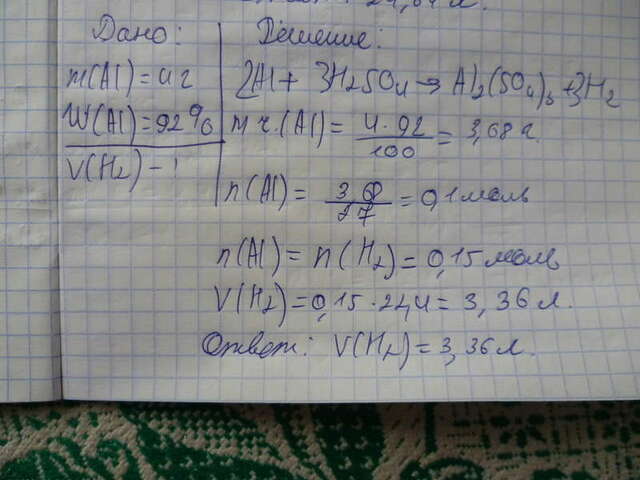 24,64 л.
Дано:
Решение:
m(Al) = 4 г
W(Al) = 92%
V(H2) - ?
2Al + 3H2SO4 → Al2(SO4)3 + 3H2
m ч.(Al) = 4·92/100 = 3,68 г.
n(Al) = 3,68/27 = 0,1 моль
n(Al) = n(H2) = 0,15 моль
V(H2) = 0,15·22,4 = 3,36 л.
Ответ: V(H2) = 3,36 л.